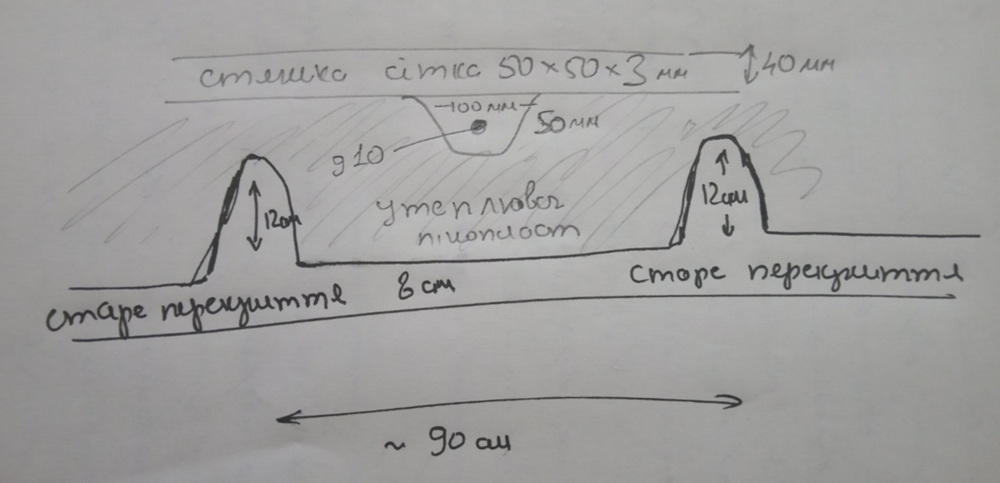 стяжка сітка 50×50×3 мм 40мм
100мм
50мм
д10
12см
12см
утеплювач
пінопласт
старе перекриття 8 см старе перекриття
~ 90 см